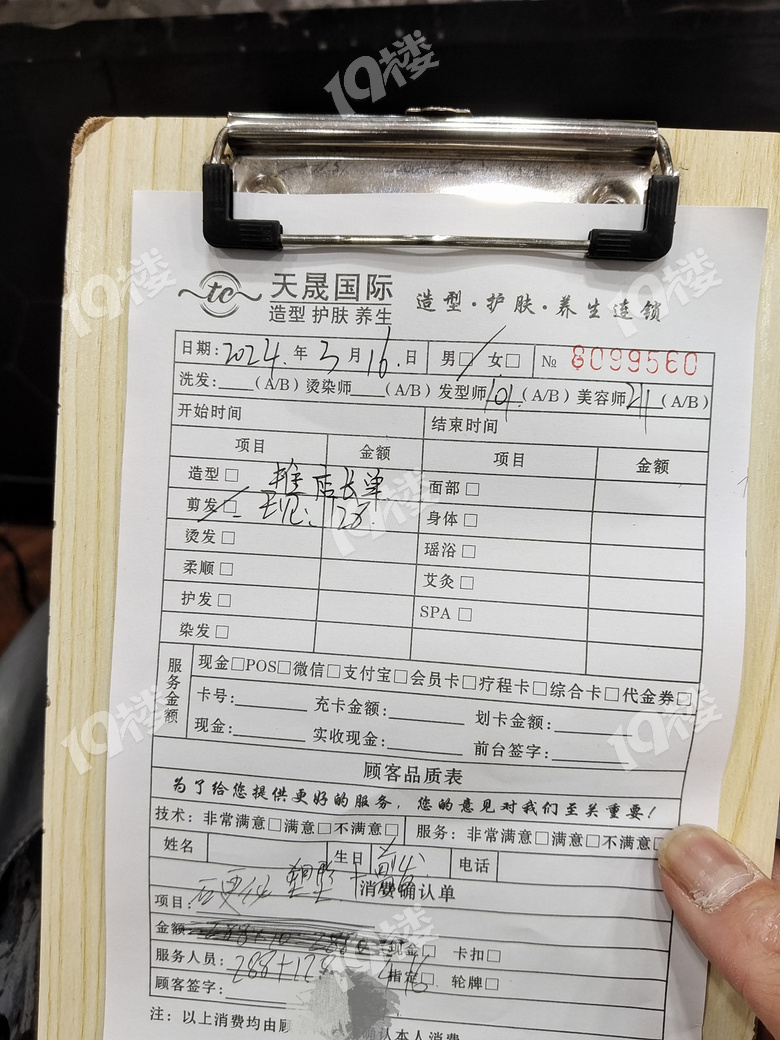 19楼
tc 天晟国际 造型·护肤·养生连锁
造型 护肤 养生
日期: 2024. 年 3 月 16. 日 男□ 女□ № 8099560
洗发:____(A/B) 烫染师____(A/B) 发型师 101. (A/B) 美容师 211 (A/B)
开始时间 结束时间
项目 金额 项目 金额
造型□ 店长单 面部□
剪发□ 128. 身体□
烫发□ 瑶浴□
柔顺□ 艾灸□
护发□ SPA□
染发□
服务金额 现金□POS□微信□支付宝□会员卡□疗程卡□综合卡□代金券□
卡号:______ 充卡金额:______ 划卡金额:______
现金:______ 实收现金:______ 前台签字:______
顾客品质表
为了给您提供更好的服务,您的意见对我们至关重要!
技术: 非常满意□满意□不满意□ 服务: 非常满意□满意□不满意□
姓名 生日 电话
消费确认单
项目:
金额 现金□ 卡扣□
服务人员: 288+128 416 指定□ 轮牌□
顾客签字:
注: 以上消费均由顾 确认本人消费